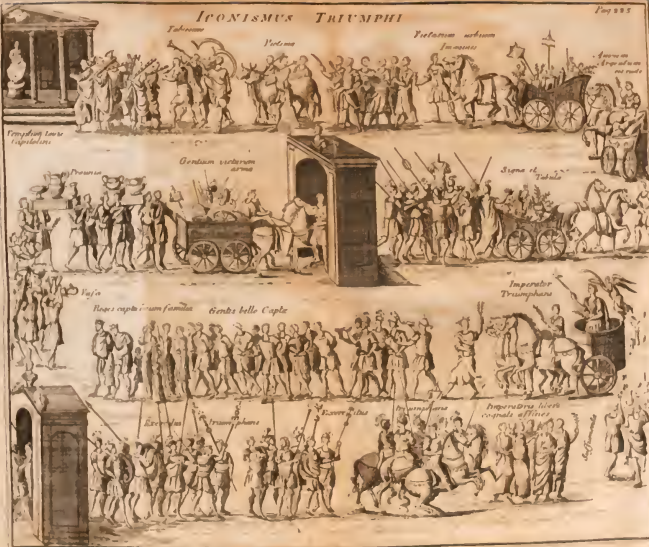 ICONISMUS TRIUMPHI
Pag 223
Tubicines
Victimæ
Victarum urbium
Imagines
Aurum
Argentum
Templum Iovis
Capitolini
Pecunia
Gentium victarum
arma
Signa et
Tabulæ
Vasa
Reges capti
familia
Gentis bello Captæ
Imperator
Triumphans
Exercitus
triumphans
Exercitus
triumphans
Imperatoris liberi
affines